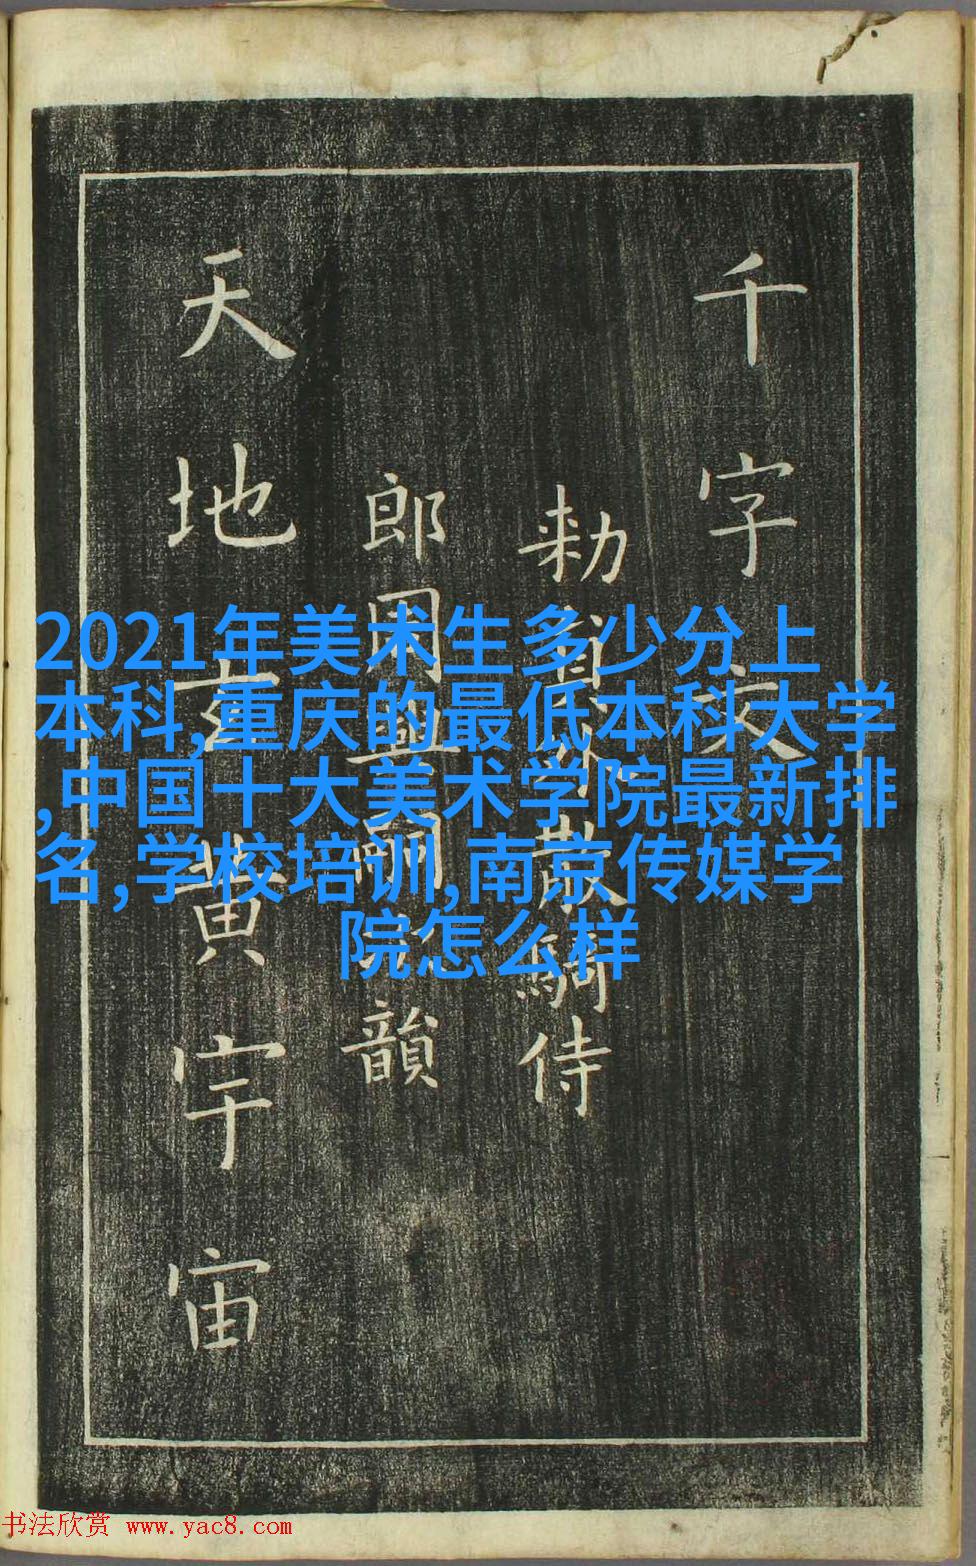 千字文
勑員外散騎侍
郎周興嗣次韻
天地玄黄宇宙
2021年美术生多少分上
本科,重庆的最低本科大学
,中国十大美术学院最新排
名,学校培训,南京传媒学
院怎么样
书法欣赏 www.yac8.com